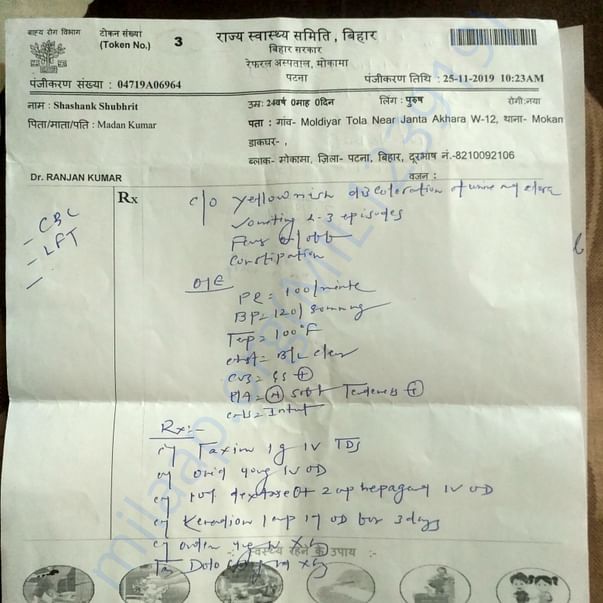 बाह्य रोग विभाग
टोकन संख्या
(Token No.)
3
राज्य स्वास्थ्य समिति , बिहार
बिहार सरकार
रेफरल अस्पताल, मोकामा
पटना
पंजीकरण संख्या : 04719A06964
पंजीकरण तिथि : 25-11-2019 10:23AM
नाम : Shashank Shubhrit
उम्र: 24वर्ष 0माह 0दिन
लिंग : पुरुष
रोगी:नया
पिता/माता/पति : Madan Kumar
पता : गांव- Moldiyar Tola Near Janta Akhara W-12, थाना- Mokan
डाकघर- ,
ब्लाक- मोकामा, ज़िला- पटना, बिहार, दूरभाष नं.-8210092106
Dr. RANJAN KUMAR
वजन :
Rx
- CBC
- LFT
c/o yellowish discoloration of urine
vomiting 2-3 episodes
Fever
Constipation
O/E
PR = 100/minute
BP = 120/
Temp = 100°F
chest = B/L clear
CVS = S1 S2 +
P/A = soft Tenderness +
CNS = Intact
Rx:-
Taxim 1g IV TDS
40mg IV OD
10% dextrose 2 amp hepamerz IV OD
1 amp OD for 3 days
Tab Dolo
-: स्वस्थ्य रहने के उपाय :-
milaap.org/MILI